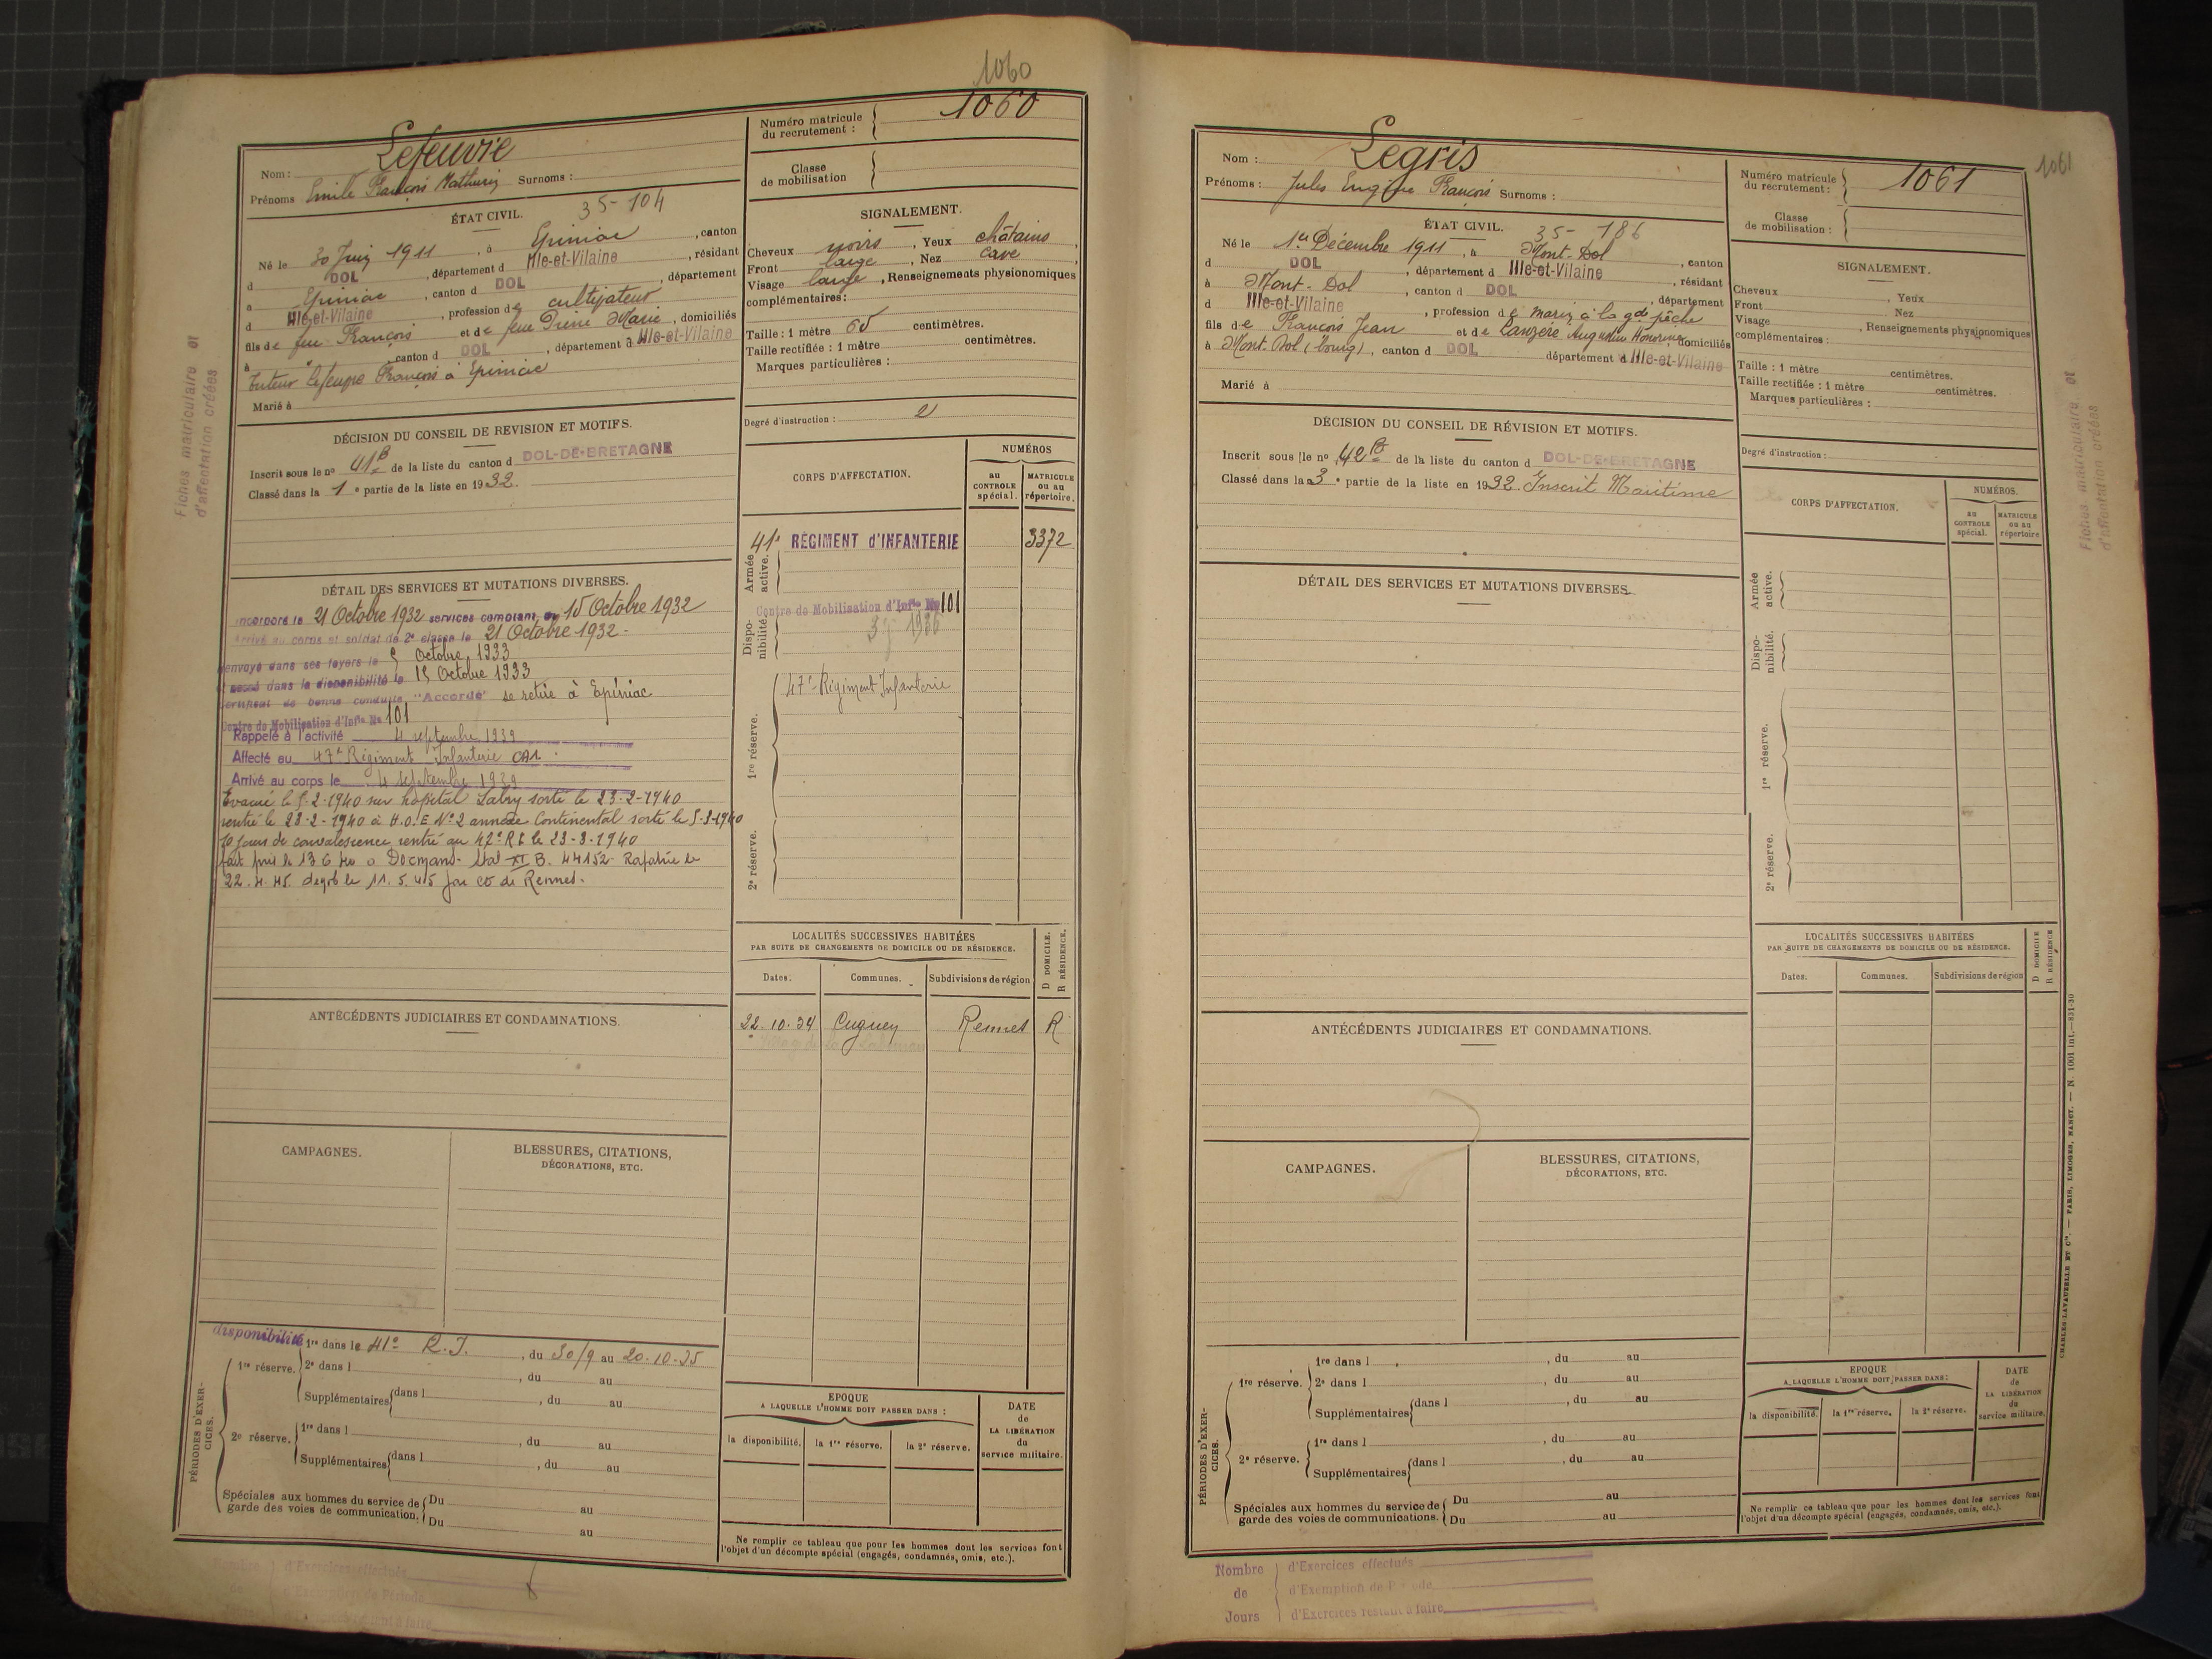 1060
1060
Nom : Lefeuvre
Prénoms Emile François Mathurin Surnoms :
Numéro matricule
du recrutement :
Classe
de mobilisation
ÉTAT CIVIL. 35-104
Né le 30 Juin 1911, à Epiniac, canton
d DOL, département d Ille-et-Vilaine, résidant
à Epiniac, canton d DOL, département
d Ille-et-Vilaine, profession de cultivateur
fils de feu François et de feue Marie, domiciliés
à " canton d DOL, département d Ille-et-Vilaine
Tuteur Lefeuvre François à Epiniac
Marié à
SIGNALEMENT.
Cheveux noirs, Yeux châtains,
Front large, Nez cave,
Visage large, Renseignements physionomiques
complémentaires :
Taille : 1 mètre 65 centimètres.
Taille rectifiée : 1 mètre centimètres.
Marques particulières :
Degré d'instruction : 2
DÉCISION DU CONSEIL DE REVISION ET MOTIFS.
Inscrit sous le no 41 B de la liste du canton d DOL-DE-BRETAGNE
Classé dans la 1e partie de la liste en 1932.
Fiches matriculaire et
d'affectation créées
CORPS D'AFFECTATION.
NUMÉROS
au
CONTROLE
spécial.
MATRICULE
ou au
répertoire.
Armée
active.
41e RÉGIMENT d'INFANTERIE 3372
Dispo-
nibilité.
Centre de Mobilisation d'Infie No 101
1re réserve.
47e Régiment Infanterie
2e réserve.
DÉTAIL DES SERVICES ET MUTATIONS DIVERSES.
Incorporé le 21 Octobre 1932 services comptant du 15 Octobre 1932
Arrivé au corps et soldat de 2e classe le 21 Octobre 1932.
Renvoyé dans ses foyers le 5 Octobre 1933
et passé dans la disponibilité le 15 Octobre 1933
Certificat de bonne conduite "Accordé" se retire à Epiniac
Centre de Mobilisation d'Infie No 101
Rappelé à l'activité 4 septembre 1939
Affecté au 47e Régiment Infanterie CA1
Arrivé au corps le 4 septembre 1939
Evacué le 5-2-1940 sur hopital Labry sorti le 23-2-1940
rentré le 23-2-1940 à H.O.E No 2 annexe Continental sorti le 5-3-1940
10 jours de convalescence rentré au 47e RI le 23-3-1940
fait pris le 13 6 40 a Stal XI B. 44152. Rapatrié le
22.4.45. dégob le 11.5.45 par CD de Rennes.
LOCALITÉS SUCCESSIVES HABITÉES
PAR SUITE DE CHANGEMENTS DE DOMICILE OU DE RÉSIDENCE.
D DOMICILE.
R RÉSIDENCE.
Dates. Communes. Subdivisions de région
22.10.34 Cuguen Rennes R
ANTÉCÉDENTS JUDICIAIRES ET CONDAMNATIONS.
CAMPAGNES.
BLESSURES, CITATIONS,
DÉCORATIONS, ETC.
PÉRIODES D'EXER-
CICES.
disponibilité 1re dans le 41e R.I., du 30/9 au 20.10.35
1re réserve. 2e dans l , du au
Supplémentaires dans l , du au
2e réserve. 1re dans l , du au
Supplémentaires dans l , du au
Spéciales aux hommes du service de Du au
garde des voies de communication. Du au
EPOQUE
A LAQUELLE L'HOMME DOIT PASSER DANS :
la disponibilité. la 1re réserve. la 2e réserve.
DATE
de
LA LIBÉRATION
du
service militaire.
Ne remplir ce tableau que pour les hommes dont les services font
l'objet d'un décompte spécial (engagés, condamnés, omis, etc.).
d'Exercices effectués
1061
Nom : Legris
Prénoms : Jules Eugène François Surnoms :
Numéro matricule
du recrutement : 1061
Classe
de mobilisation :
ÉTAT CIVIL. 35-186
Né le 1er Décembre 1911, à Mont-Dol, canton
d DOL, département d Ille-et-Vilaine, résidant
à Mont-Dol, canton d DOL, département
d Ille-et-Vilaine, profession de marin à la gde pêche
fils de François Jean et de Lanzére Augustine Honorine domiciliés
à Mont-Dol (bourg), canton d DOL département d Ille-et-Vilaine
Marié à
SIGNALEMENT.
Cheveux , Yeux
Front Nez
Visage , Renseignements physionomiques
complémentaires :
Taille : 1 mètre centimètres.
Taille rectifiée : 1 mètre centimètres.
Marques particulières :
Degré d'instruction :
DÉCISION DU CONSEIL DE RÉVISION ET MOTIFS.
Inscrit sous le no 42 B de la liste du canton d DOL-DE-BRETAGNE
Classé dans la 3e partie de la liste en 1932. Inscrit Maritime
Fiches matriculaire et
d'affectation créées
CORPS D'AFFECTATION.
NUMÉROS.
au
CONTROLE
spécial.
MATRICULE
ou au
répertoire
Armée
active.
Dispo-
nibilité.
1re réserve.
2e réserve.
DÉTAIL DES SERVICES ET MUTATIONS DIVERSES.
LOCALITÉS SUCCESSIVES HABITÉES
PAR SUITE DE CHANGEMENTS DE DOMICILE OU DE RÉSIDENCE.
D DOMICILE
R RÉSIDENCE
Dates. Communes. Subdivisions de région
ANTÉCÉDENTS JUDICIAIRES ET CONDAMNATIONS.
CAMPAGNES.
BLESSURES, CITATIONS,
DÉCORATIONS, ETC.
PÉRIODES D'EXER-
CICES.
1re dans l , du au
1re réserve. 2e dans l , du au
Supplémentaires dans l , du au
1re dans l , du au
2e réserve.
Supplémentaires dans l , du au
Spéciales aux hommes du service de Du au
garde des voies de communications. Du au
EPOQUE
A LAQUELLE L'HOMME DOIT PASSER DANS :
la disponibilité. la 1re réserve. la 2e réserve.
DATE
de
LA LIBÉRATION
du
service militaire.
Ne remplir ce tableau que pour les hommes dont les services font
l'objet d'un décompte spécial (engagés, condamnés, omis, etc.).
CHARLES-LAVAUZELLE ET Cie. — PARIS, LIMOGES, NANCY. — N. 1001 int.—831-30
Nombre d'Exercices effectués
de d'Exemption de Période
Jours d'Exercices restant à faire